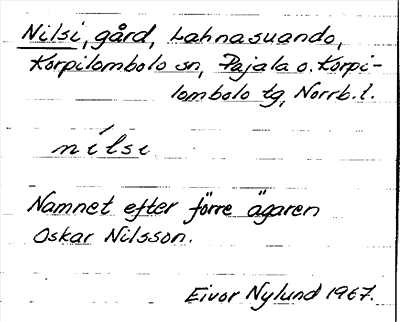 Nilsi, gård, Lahnasuando,
Korpilombolo sn, Pajala o. Korpi-
lombolo tg, Norrb. l.
nilsi
Namnet efter förre ägaren
Oskar Nilsson.
Eivor Nylund 1967.